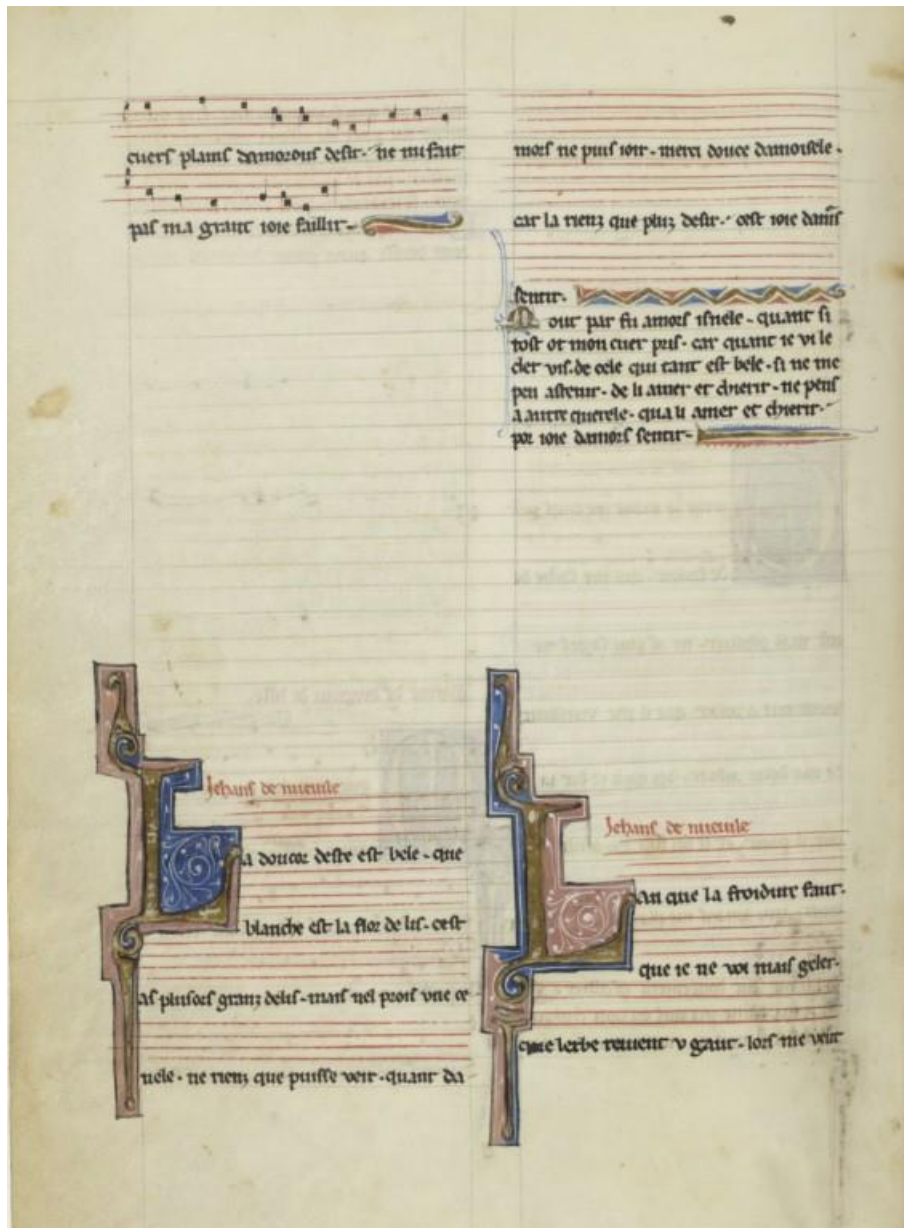 cuers plains damorous desir · ne mi fait
pas ma grant ioie faillir ·
Jehans de nueuile
La doucor deste est bele · que
blanche est la flor de lis · cest
as plusors granz delis · mais nel prois vne ce
nele · ne rienz que puisse veir · quant da
mors ne puis ioir · merci douce damoisele ·
car la rienz que pluz desir · cest ioie damors
sentir ·
Mout par fu amors isnele · quant si
tost ot mon cuer pris · car quant ie vi le
cler vis · de cele qui tant est bele · si ne me
peu astenir · de li amer et chierir · ne pens
a autre querele · qua li amer et chierir ·
por ioie damors sentir ·
Jehans de nueuile
Lan que la froidure faut ·
que ie ne voi mais geler ·
que lerbe reuient v gaut · lors me veut